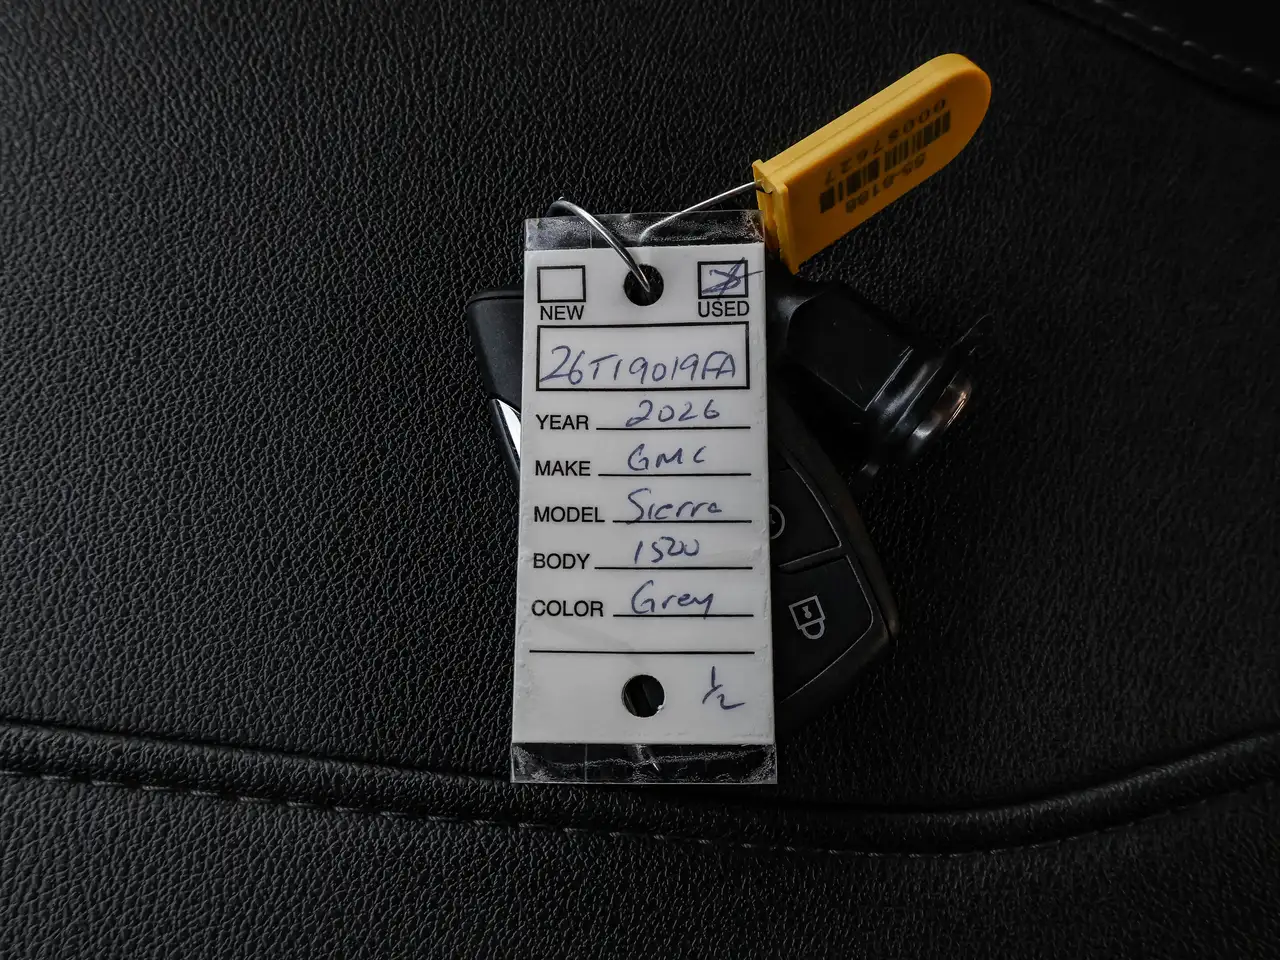 00087627
55-0198
NEW
USED
26T19019FA
YEAR 2026
MAKE GMC
MODEL Sierra
BODY 1500
COLOR Grey
1/2